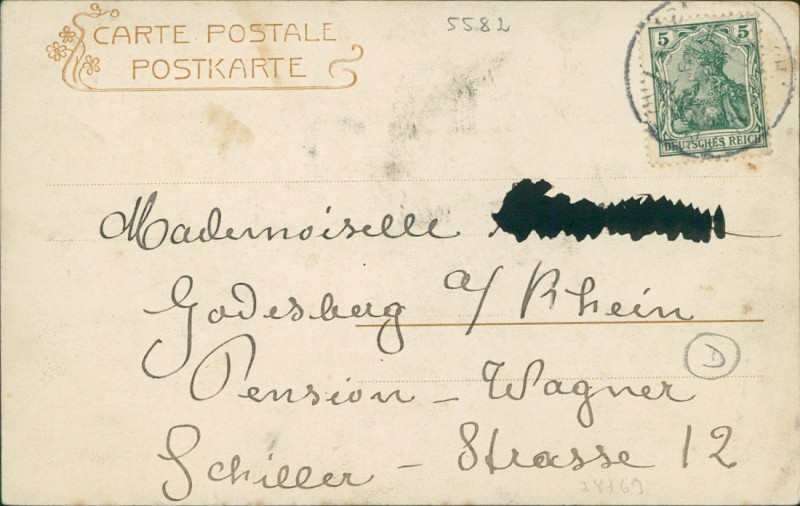 CARTE POSTALE
POSTKARTE
5582
5 5
DEUTSCHES REICH
Mademoiselle
Godesberg a/ Rhein
D
Pension - Wagner
Schiller - Strasse 12